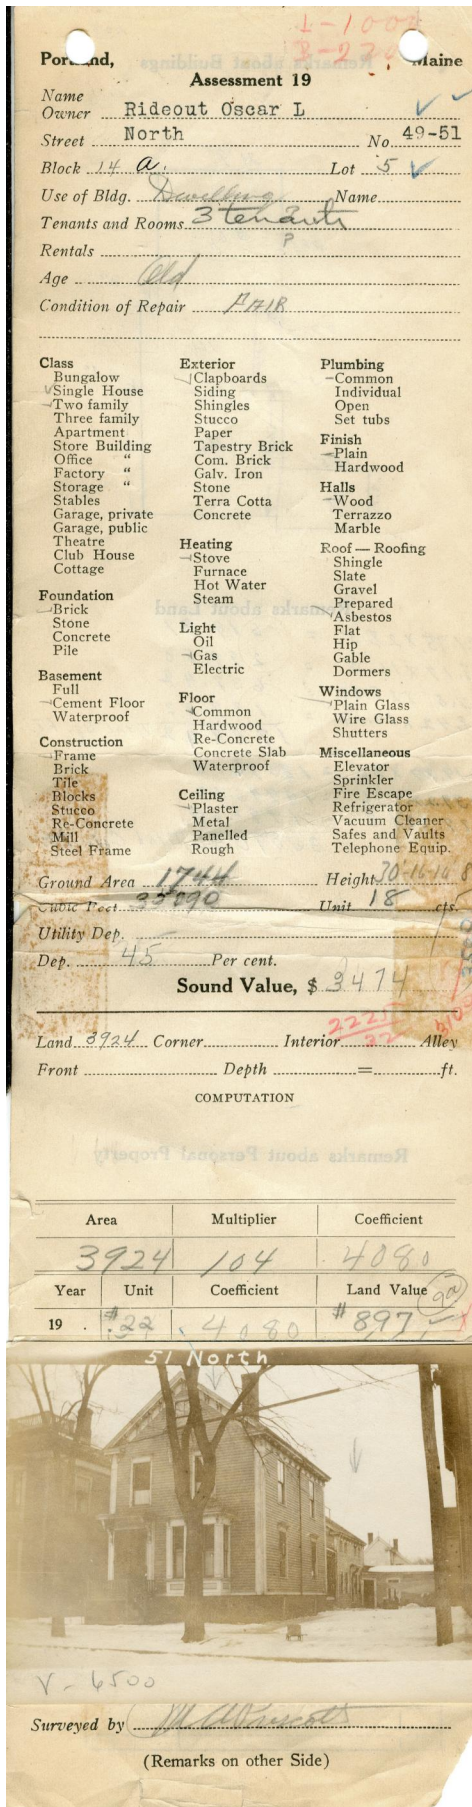 L-1000
Portland, Maine
Assessment 19
Name
Owner Rideout Oscar L
Street North No. 49-51
Block 14 a. Lot 5
Use of Bldg. Dwelling Name
Tenants and Rooms 3 tenants
P
Rentals
Age Old
Condition of Repair FAIR
Class
Bungalow
Single House
Two family
Three family
Apartment
Store Building
Office "
Factory "
Storage "
Stables
Garage, private
Garage, public
Theatre
Club House
Cottage
Foundation
Brick
Stone
Concrete
Pile
Basement
Full
Cement Floor
Waterproof
Construction
Frame
Brick
Tile
Blocks
Stucco
Re-Concrete
Mill
Steel Frame
Exterior
Clapboards
Siding
Shingles
Stucco
Paper
Tapestry Brick
Com. Brick
Galv. Iron
Stone
Terra Cotta
Concrete
Heating
Stove
Furnace
Hot Water
Steam
Light
Oil
Gas
Electric
Floor
Common
Hardwood
Re-Concrete
Concrete Slab
Waterproof
Ceiling
Plaster
Metal
Panelled
Rough
Plumbing
Common
Individual
Open
Set tubs
Finish
Plain
Hardwood
Halls
Wood
Terrazzo
Marble
Roof — Roofing
Shingle
Slate
Gravel
Prepared
Asbestos
Flat
Hip
Gable
Dormers
Windows
Plain Glass
Wire Glass
Shutters
Miscellaneous
Elevator
Sprinkler
Fire Escape
Refrigerator
Vacuum Cleaner
Safes and Vaults
Telephone Equip.
Ground Area 1744 Height 30-16 14 8
Cubic Feet Unit 18 cts.
Utility Dep.
Dep. 45 Per cent.
Sound Value, $ 3474
2225
32
Land 3924 Corner Interior Alley
Front Depth = ft.
COMPUTATION
Area Multiplier Coefficient
3924 104 4080
Year Unit Coefficient Land Value
19 $.22 4080 $897
51 North
V-6500
Surveyed by
(Remarks on other Side)